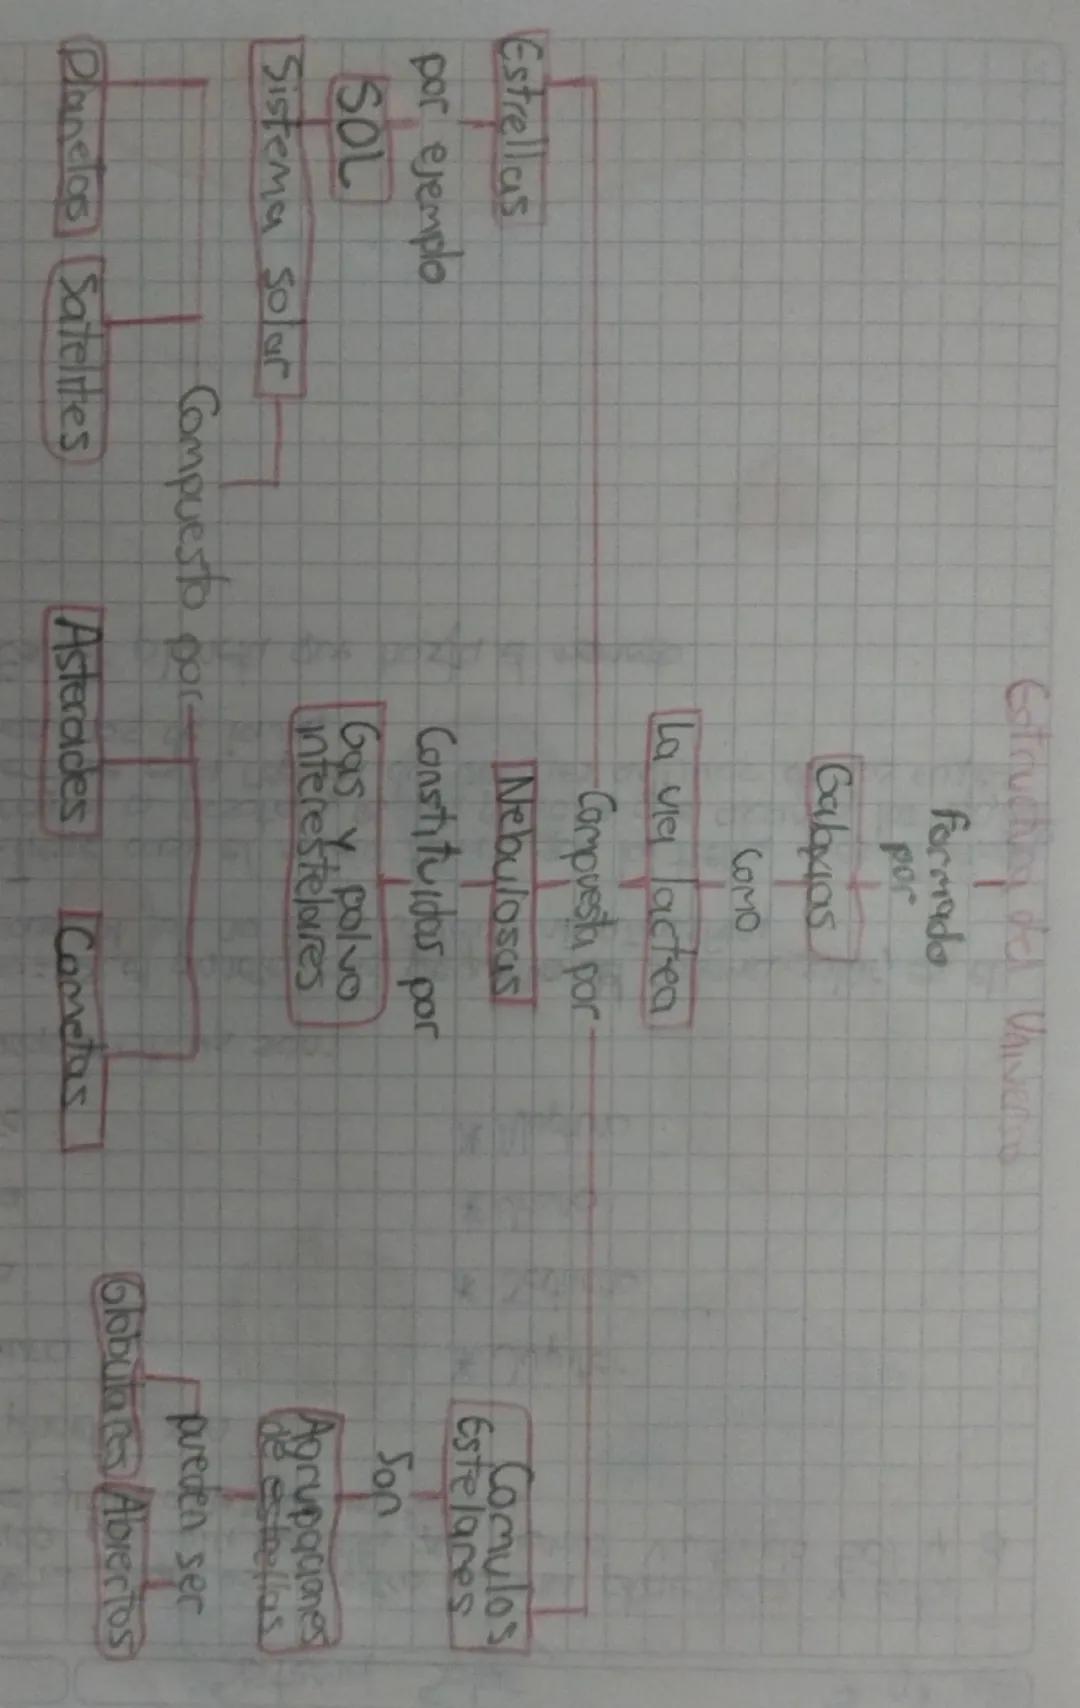 Estructura del Universo
formado
por
Galaxias
como
La via lactea
Compuesta por
Estrellas
Nebulosas
Comulos
Estelares
por ejemplo
Constituidas por
Son
SOL
Gas y polvo
interestelares
Agrupaciones
de estrellas
Sistema Solar
Compuesto por
pueden ser
Planetas
Satelites
Asteroides
Cometas
Globulares
Abiertos